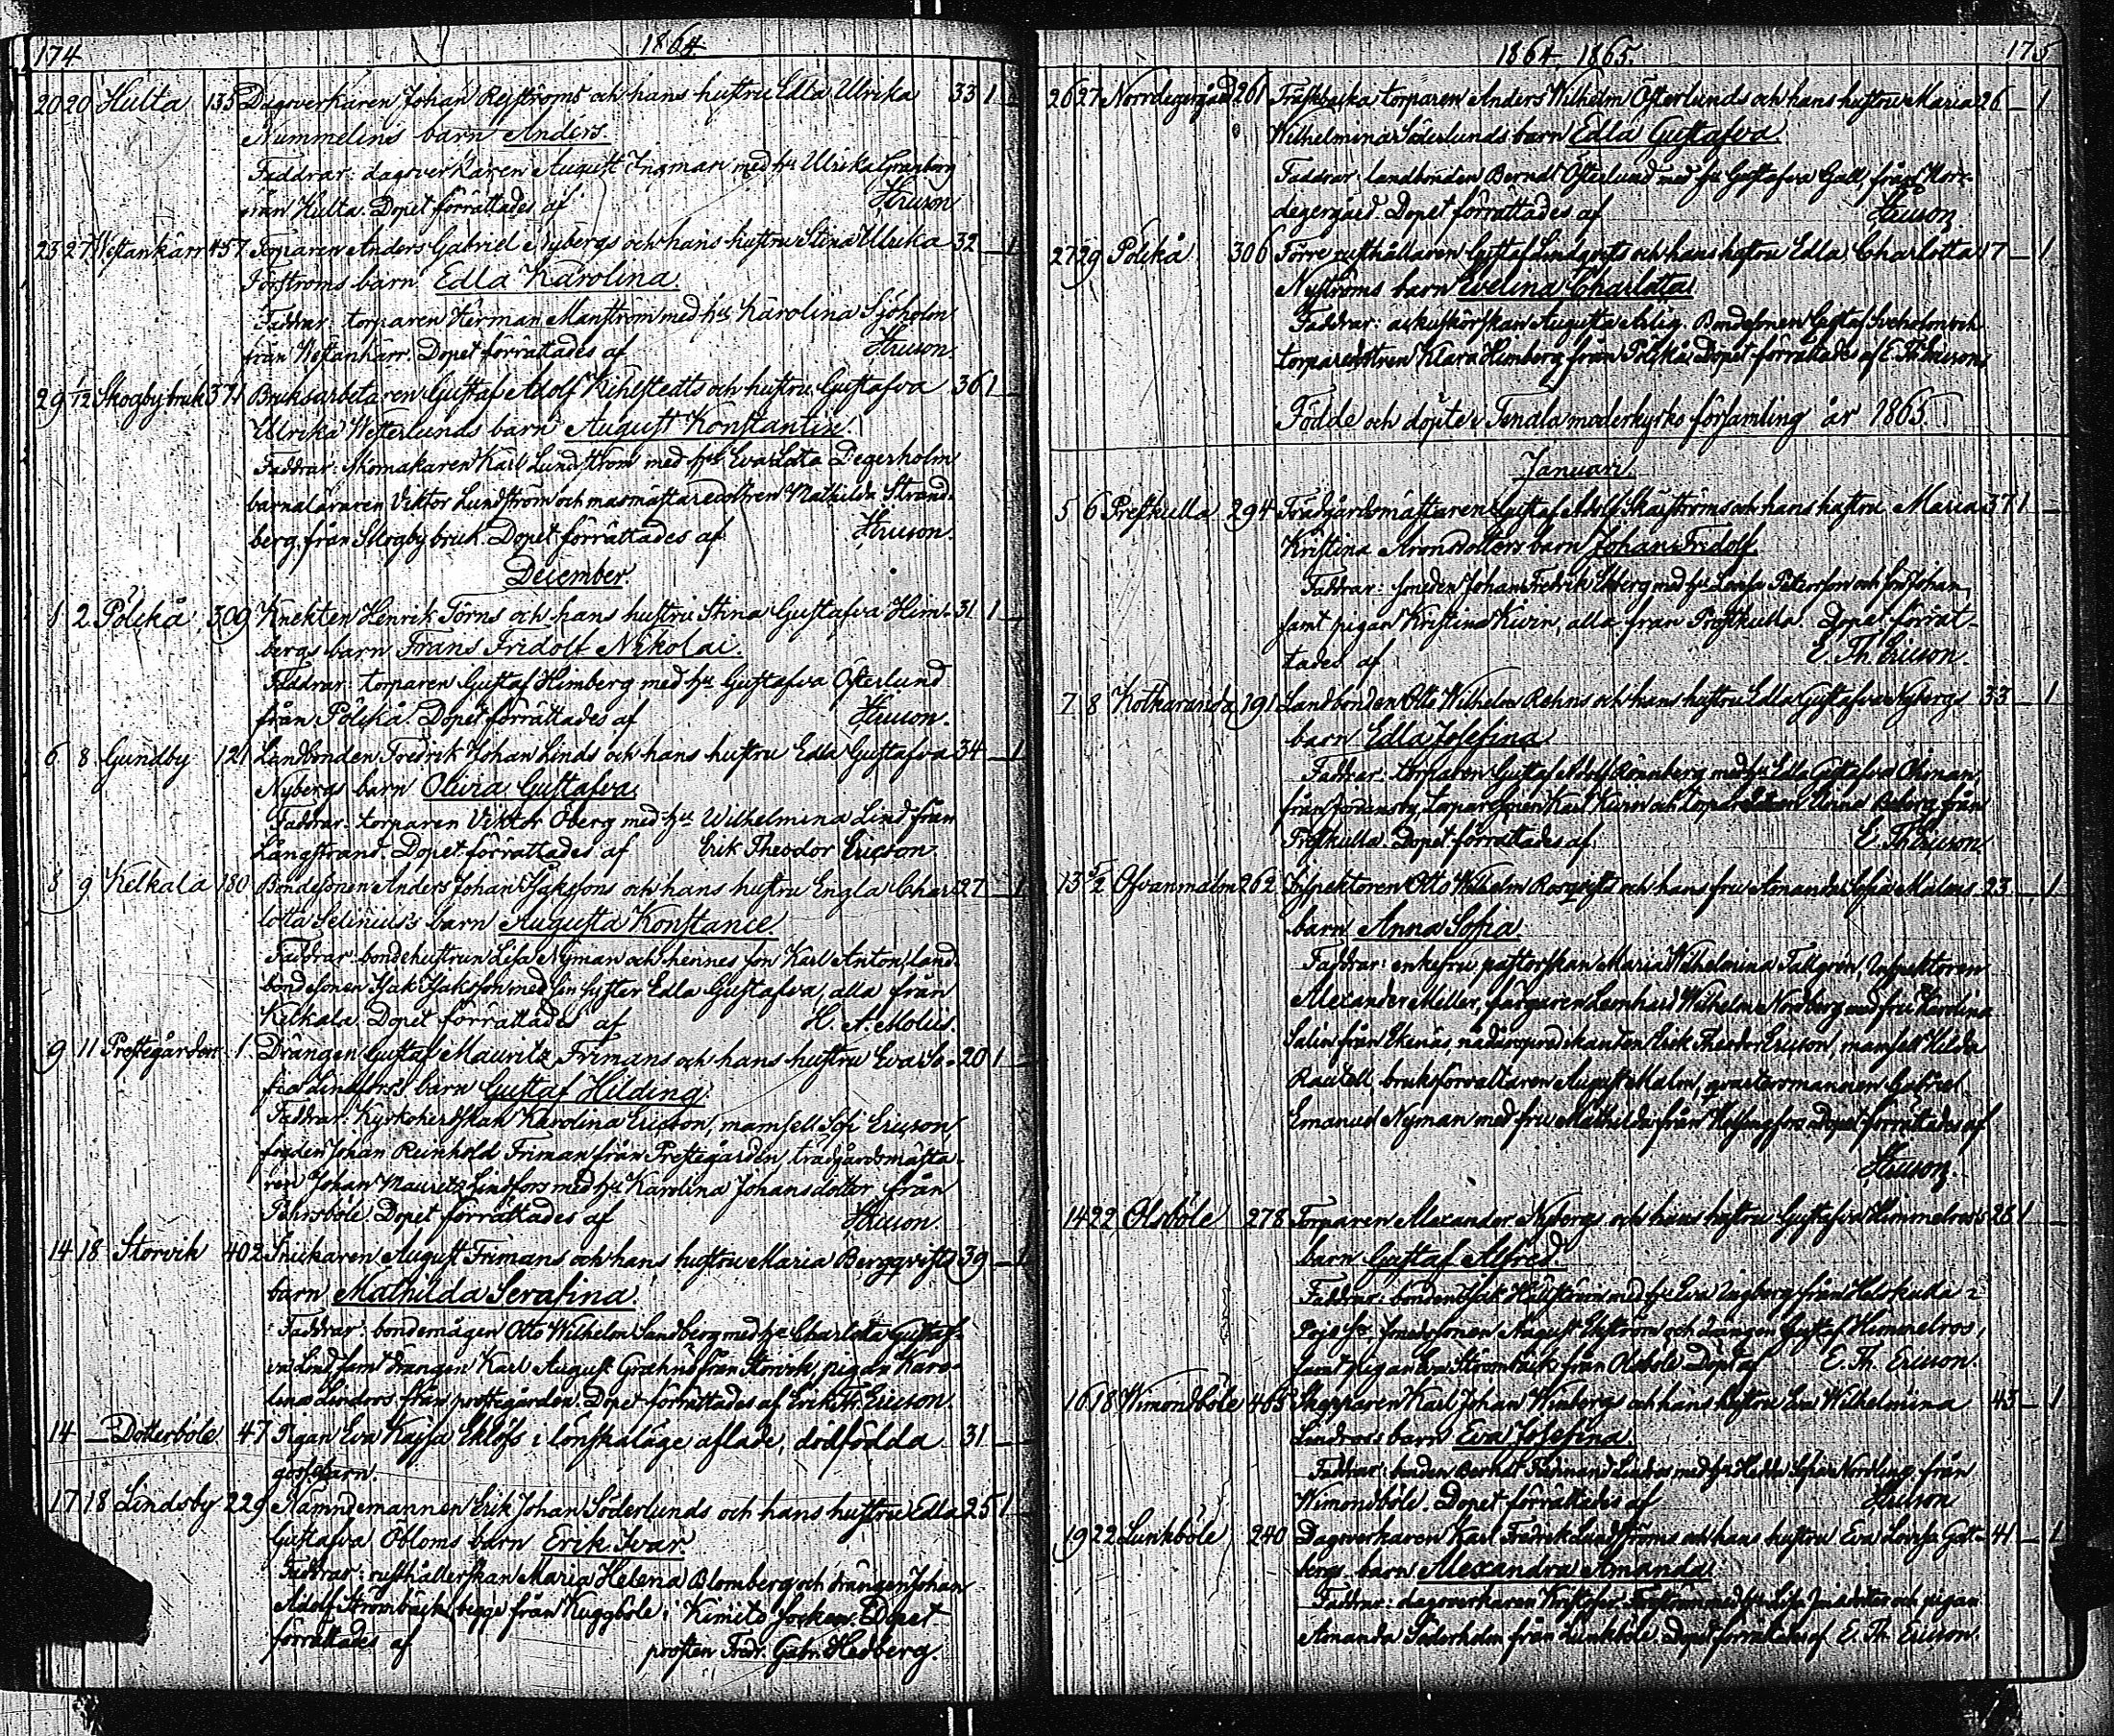 174 1864
20 20 Hulta 135 Dagsverkaren Johan Rejströms och hans hustru Edla Ulrika 33 1 –
Nummelins barn Anders.
Faddrar: dagsverkaren August Ingman med hu Ulrika Granborg
från Hulta. Dopet förrättades af Ericson
23 27 Westankärr 457 Torparen Anders Gabriel Nybergs och hans hustru Stina Ulrika 32 – 1
Förströms barn Edla Karolina.
Faddrar: torparen Herman Manström med hu Karolina Sjöholm
från Westankärr. Dopet förrättades af Ericson.
29 1/12 Skogby bruk 371 Bruksarbetaren Gustaf Adolf Kihlstedts och hustru Gustafva 36 1
Ulrika Westerlunds barn August Konstantin.
Faddrar: skomakaren Karl Lundström med hu Eva Lota Degerholm
barnaläraren Viktor Lundström och masmästaredottren Mathilda Strand-
berg, från Skogby bruk. Dopet förrättades af Ericson.
December.
1 2 Pölckå 309 Knekten Henrik Törns och hans hustru Stina Gustafva Him- 31 1 –
bergs barn Frans Fridolf Nikolai.
Faddrar: torparen Gustaf Himberg med hu Gustafva Österlund
från Pölckå. Dopet förrättades af Ericson.
6 8 Gundby 121 Landbonden Fredrik Johan Linds och hans hustru Edla Gustafva 34 – 1
Nybergs barn Olivia Gustafva.
Faddrar: torparen Viktor Öberg med hu Wilhelmina Lind från
Långstrand. Dopet förrättades af Erik Theodor Ericson.
8 9 Kelkala 180 Bondesonen Anders Johan Isaksons och hans hustru Engla Char- 27 – 1
lotta Selinius's barn Augusta Konstance.
Faddrar: bondehustrun Lisa Nyman och hennes son Karl Anton, land-
bondesonen Isak Isaksson med sin syster Edla Gustafva, alla från
Kelkala. Dopet förrättades af H. A. Molíis.
9 11 Prostegården 1 Drängen Gustaf Mauritz Frimans och hans hustru Eva So- 20 1 –
fia Lindfors's barn Gustaf Hilding.
Faddrar: Kyrkoherdskan Karolina Ericson, mamsell Sofi Ericson,
fogden Johan Reinhold Friman från Prestegården, trädgårdsmästa-
ren Johan Mauritz Lindfors med hu Karolina Johansdotter från
Pehrsböle. Dopet förrättades af Ericson.
14 18 Storvik 402 Snickaren August Frimans och hans hustru Maria Bergqvists 39 – 1
barn Mathilda Serafina.
Faddrar: bondemågen Otto Wilhelm Sandberg med hu Charlotta Gustaf-
va Lind, samt drängen Karl August Grahn från Storvik, pigan Karo-
lina Lindroos från prostegården. Dopet förrättades af Erik Th. Ericson.
14 – Dotterböle 47 Pigan Eva Kajsa Eklöfs i lönskaläge aflade, dödfödda 31 –
gossebarn.
17 18 Lindsby 229 Nämndemannen Erik Johan Söderlunds och hans hustru Edla 25 1 –
Gustafva Öbloms barn Erik Ivar.
Faddrar: rusthållerskan Maria Helena Blomberg och drängen Johan
Adolf Strömbäck, begge från Kuggböle i Kimito socken. Dopet
förrättades af prosten Fredr. Gabr. Hedberg.
1864. 1865. 175
26 27 Norrdegergård 261 Träskbacka torparen Anders Wilhelm Österlunds och hans hustru Maria 26 – 1
Wilhelmina Söderlunds barn Edla Gustafva.
Faddrar: landbonden Berndt Österlund med hu Gustafva Gall, från Norr-
degergård. Dopet förrättades af Ericson
27 29 Pölckå 306 Förre rusthållaren Gustaf Lindqvists och hans hustru Edla Charlotta 17 – 1
Nyströms barn Evelina Charlotta.
Faddrar: ackuskörskan Augusta Bondesonen Gustaf och
torparedottren Klara Himberg från Pölckå. Dopet förrättades af E. Th. Ericson.
Födde och döpte i Tenala moderkyrko församling år 1865.
Januari.
5 6 Prestkulla 294 Trädgårdsmästaren Gustaf Adolf Skärströms och hans hustru Maria 37 1 –
Kristina Aronsdotters barn Johan Fridolf.
Faddrar: smeden Johan Fredrik Ekberg med hu Lovisa Petersson och son Johan,
samt pigan Kristina Kivin, alla från Prestkulla. Dopet förrät-
tades af E. Th. Ericson.
7 8 Kotkaranda 191 Landbonden Otto Wilhelm Rehns och hans hustru Edla Gustafva Nybergs 33 – 1
barn Edla Josefina
Faddrar: torparen Gustaf Adolf Rönnberg med hu Edla Gustafva Öhman,
från Johansby, torparesonen Karl Kivin och från
Prestkulla. Dopet förrättades af E. Th. Ericson
13 5/2 Ofvanmalm 262 Inspektoren Otto Wilhelm Rosqvists och hans fru Amanda Sofia Malms 23 – 1
barn Anna Sofia.
Faddrar: enkefru pastorskan Maria Wilhelmina Tallgren, Inspektoren
Alexander Meller, färgaren Leonhard Wilhelm Nordberg med fru Karolina
Salin från Ekenäs, nådårspredikanten Erik Theodor Ericson, mamsell Hilda
bruksförvaltaren August Malm, qvartersmannen Gabriel
Emanuel Nyman med fru Mathilda från Helsingfors. Dopet förrättades af
Ericson.
14 22 Olsböle 278 Torparen Alexander Nybergs och hans hustru Gustafva Himmelroos 28 1 –
barn Gustaf Alfred.
Faddrar: bonden Isak Hällström med hu Eva Engberg från i
Pojo Sn, smedssonen August Ekström och drängen Gustaf Himmelros,
samt pigan Eva Strömbäck från Olsböle. Döpt af E. Th. Ericson.
16 18 Wimondböle 465 Skepparen Karl Johan Winbergs och hans hustru Eva Wilhelmina 43 – 1
Lindroos barn Eva Josefina.
Faddrar: bonden Berndt Ferdinand Lindroos med hu Hedda Sofia Nordling från
Wimondböle. Dopet förrättades af Ericson
19 22 Lunkböle 240 Dagsverkaren Karl Fredrik Lundströms och hans hustru Eva Lovisa Got- 41 – 1
bergs barn Alexandra Amanda.
Faddrar: dagsverkaren Kristofer med hu Lisa och pigan
Amanda Söderholm från Lunkböle. Dopet förrättades af E. Th. Ericson.